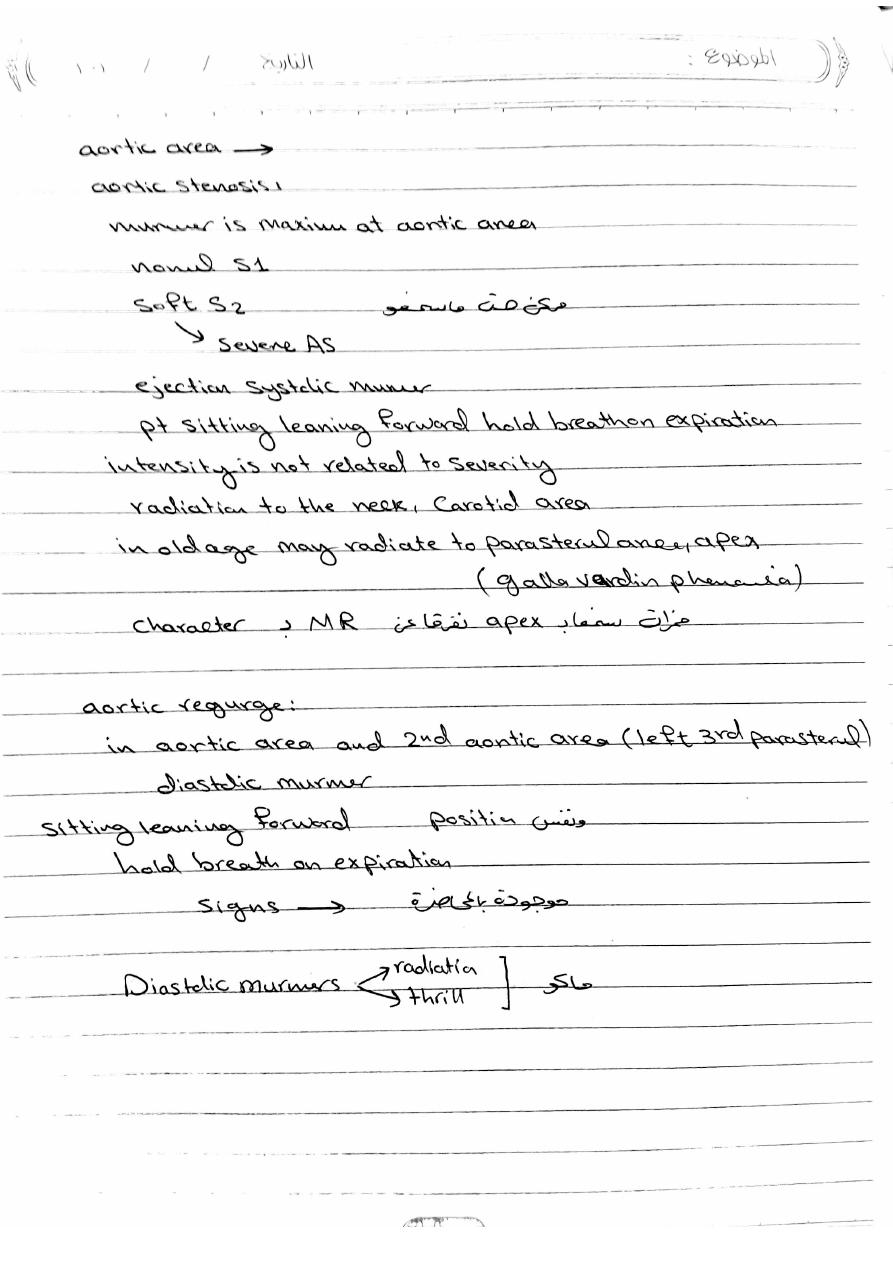 الموضوع :
التاريخ / / ١٠١
aortic area →
aortic stenosis:
murmer is maximum at aortic area
normal S1
soft S2 ممكن حتى ما يسمعو
severe AS
ejection systolic murmer
pt sitting leaning forward hold breath on expiration
intensity is not related to severity
radiation to the neck, carotid area
in old age may radiate to parasternal area, apex
(gallavardin phenomenia)
character بـ MR نفرقها عن apex مرات نسمعها بـ
aortic regurge:
in aortic area and 2nd aortic area (left 3rd parasternal)
diastolic murmer
sitting leaning forward position ونفس
hold breath on expiration
signs → موجودة بالمحاضرة
Diastolic murmers radiation
thrill ] ماكو